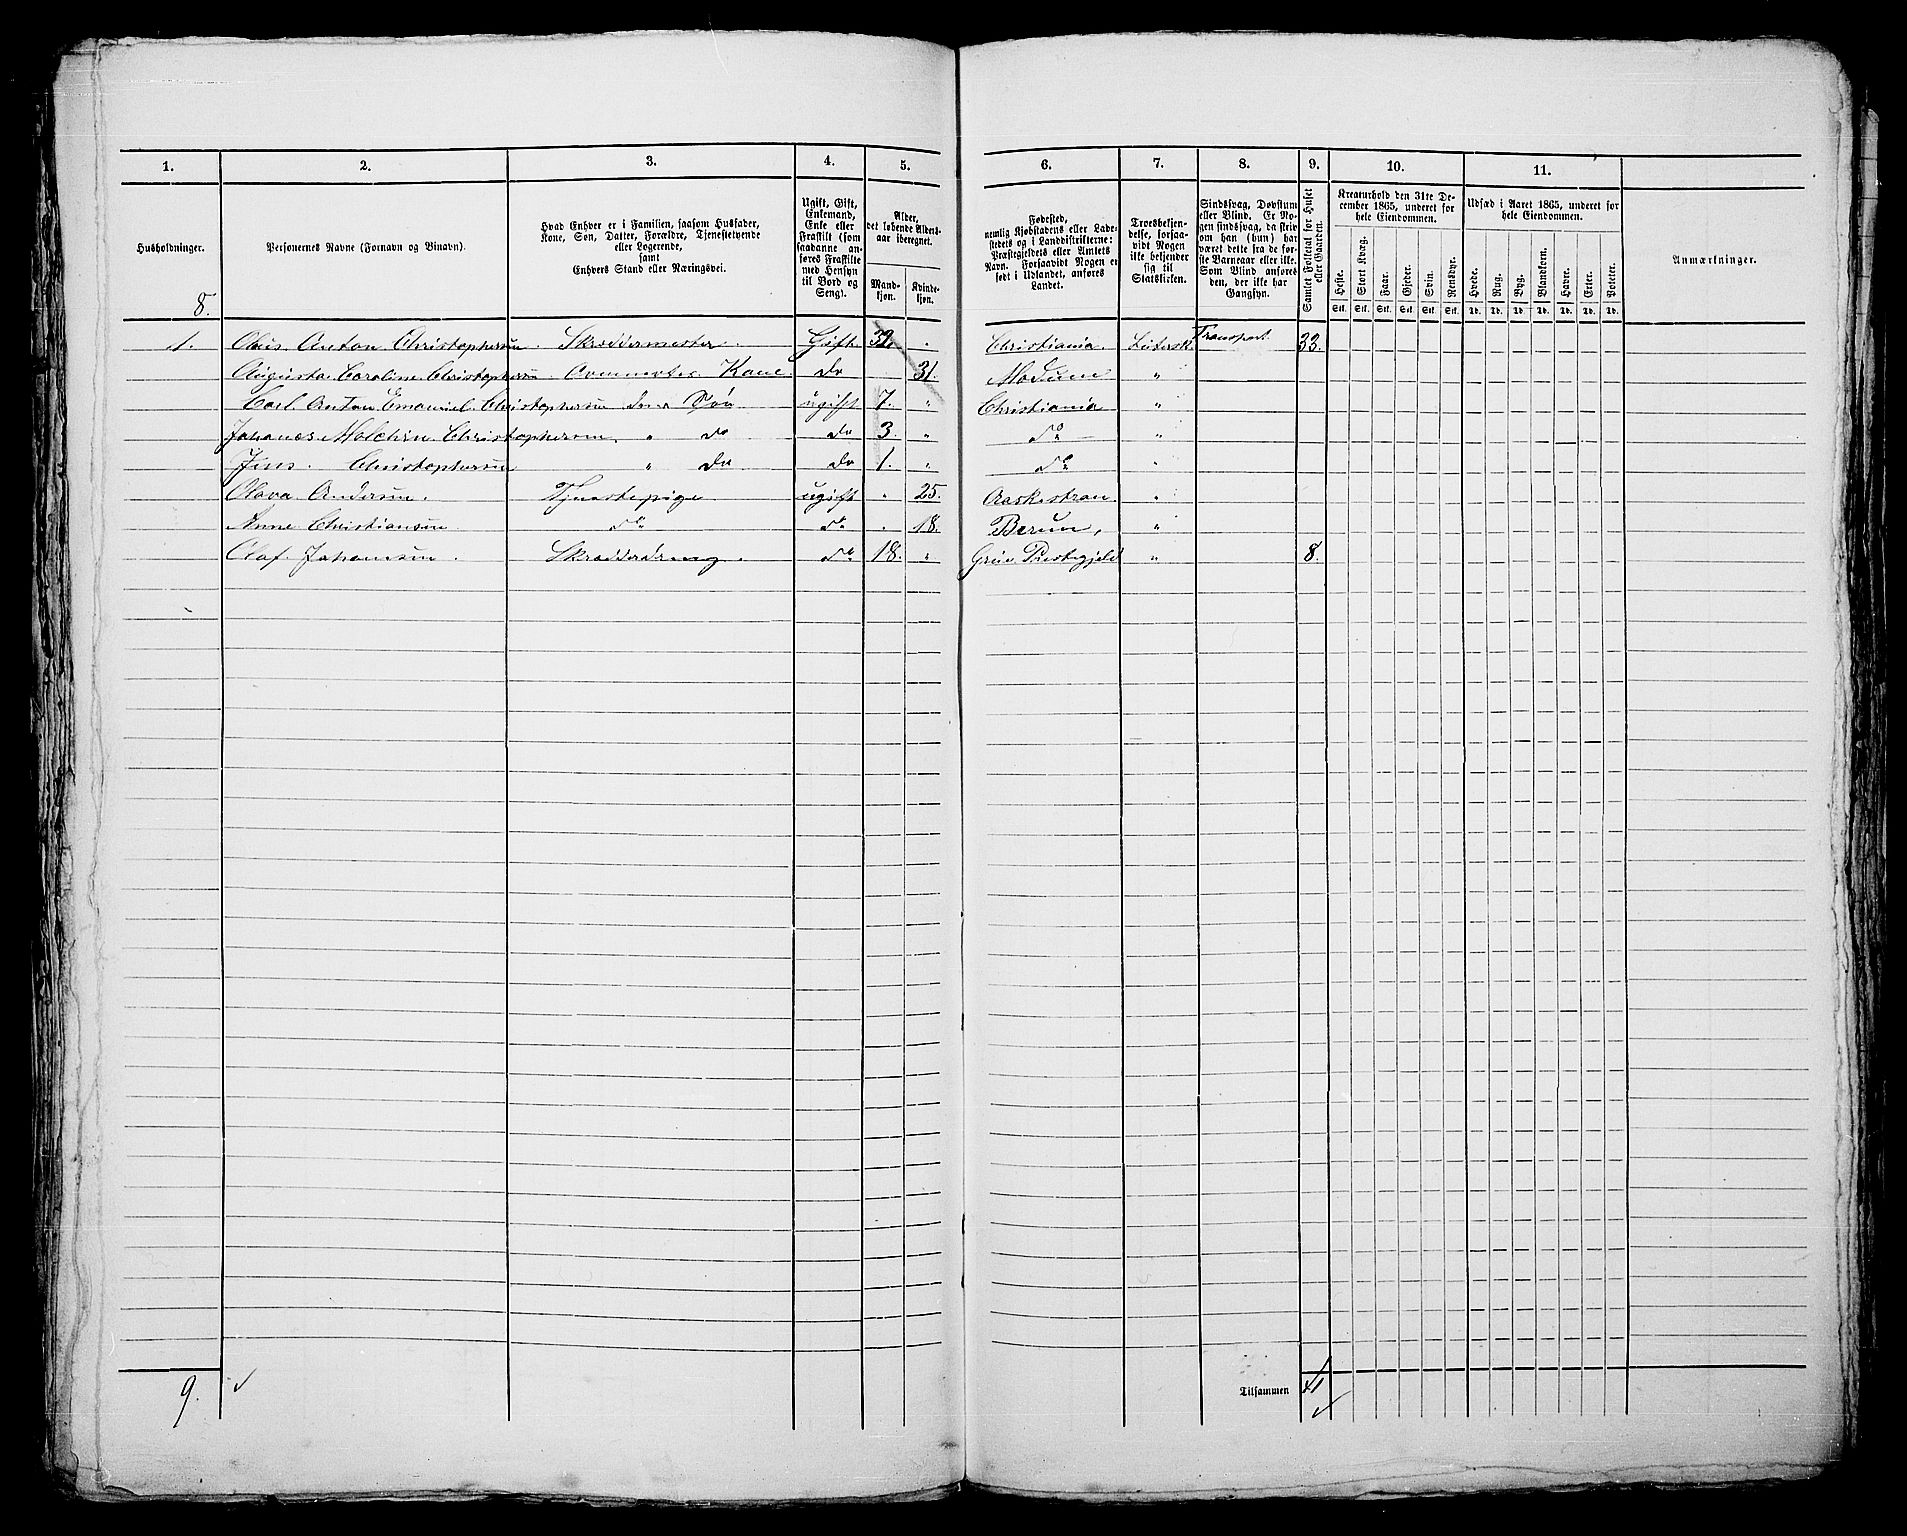 1. 2. 3. 4. 5. 6. 7. 8. 9. 10. 11.
Husholdninger.
8.
Personernes Navne (Fornavn og Binavn).
Hvad Enhver er i Familien, saasom Husfader,
Kone, Søn, Datter, Forældre, Tjenestetyende
eller Logerende,
samt
Enhvers Stand eller Næringsvei.
Ugift, Gift,
Enkemand,
Enke eller
Fraskilt (som
saadanne an-
føres Fraskilte
med Hensyn
til Bord og
Seng).
Alder,
det løbende Alders-
aar iberegnet.
Mand-
kjøn.
Kvinde-
kjøn.
Fødested,
nemlig Kjøbstadens eller Lade-
stedets og i Landdistrikterne:
Præstegjeldets eller Amtets
Navn. Forsaavidt Nogen er
født i Udlandet, anføres
Landet.
Troesbekjen-
delse, forsaa-
vidt Nogen
ikke bekjender
sig til
Statskirken.
Sindssvag, Døvstum
eller Blind. Er No-
gen sindssvag, da skriv
om han (hun) har
været dette fra de før-
ste Barneaar eller ikke.
Som Blind anføres
den, der ikke har
Gangsyn.
Samlet Folketal for Huset
eller Gaarden.
Kreaturhold den 31te De-
cember 1865, underet for
hele Eiendommen.
Heste. Stort Kvæg. Faar. Gjeder. Svin. Rensdyr.
Stk. Stk. Stk. Stk. Stk. Stk.
Udsæd i Aaret 1865, underet for
hele Eiendommen.
Hvede. Rug. Byg. Blandkorn. Havre. Erter. Poteter.
Td. Td. Td. Td. Td. Td. Td.
Anmærkninger.
1. Anton Christophersen. Skræddermester. Gift. 32. " Christiania. Lutersk. Transport 33.
Augusta Caroline Christophersen. Kone. do 31. Modum "
Carl Anton Emanuel Christophersen Søn ugift 7. " Christiania "
Christophersen " do do 3. " do "
Jens. Christophersen " do do 1. " do "
Olava Andersen. Tjenestepige ugift " 25. "
Anne Christiansen do do " 18. Berum, "
Olaf Johansen. Skrædderdreng. do 18. " Grue Prestegjeld " 8.
9.
Tilsammen 41